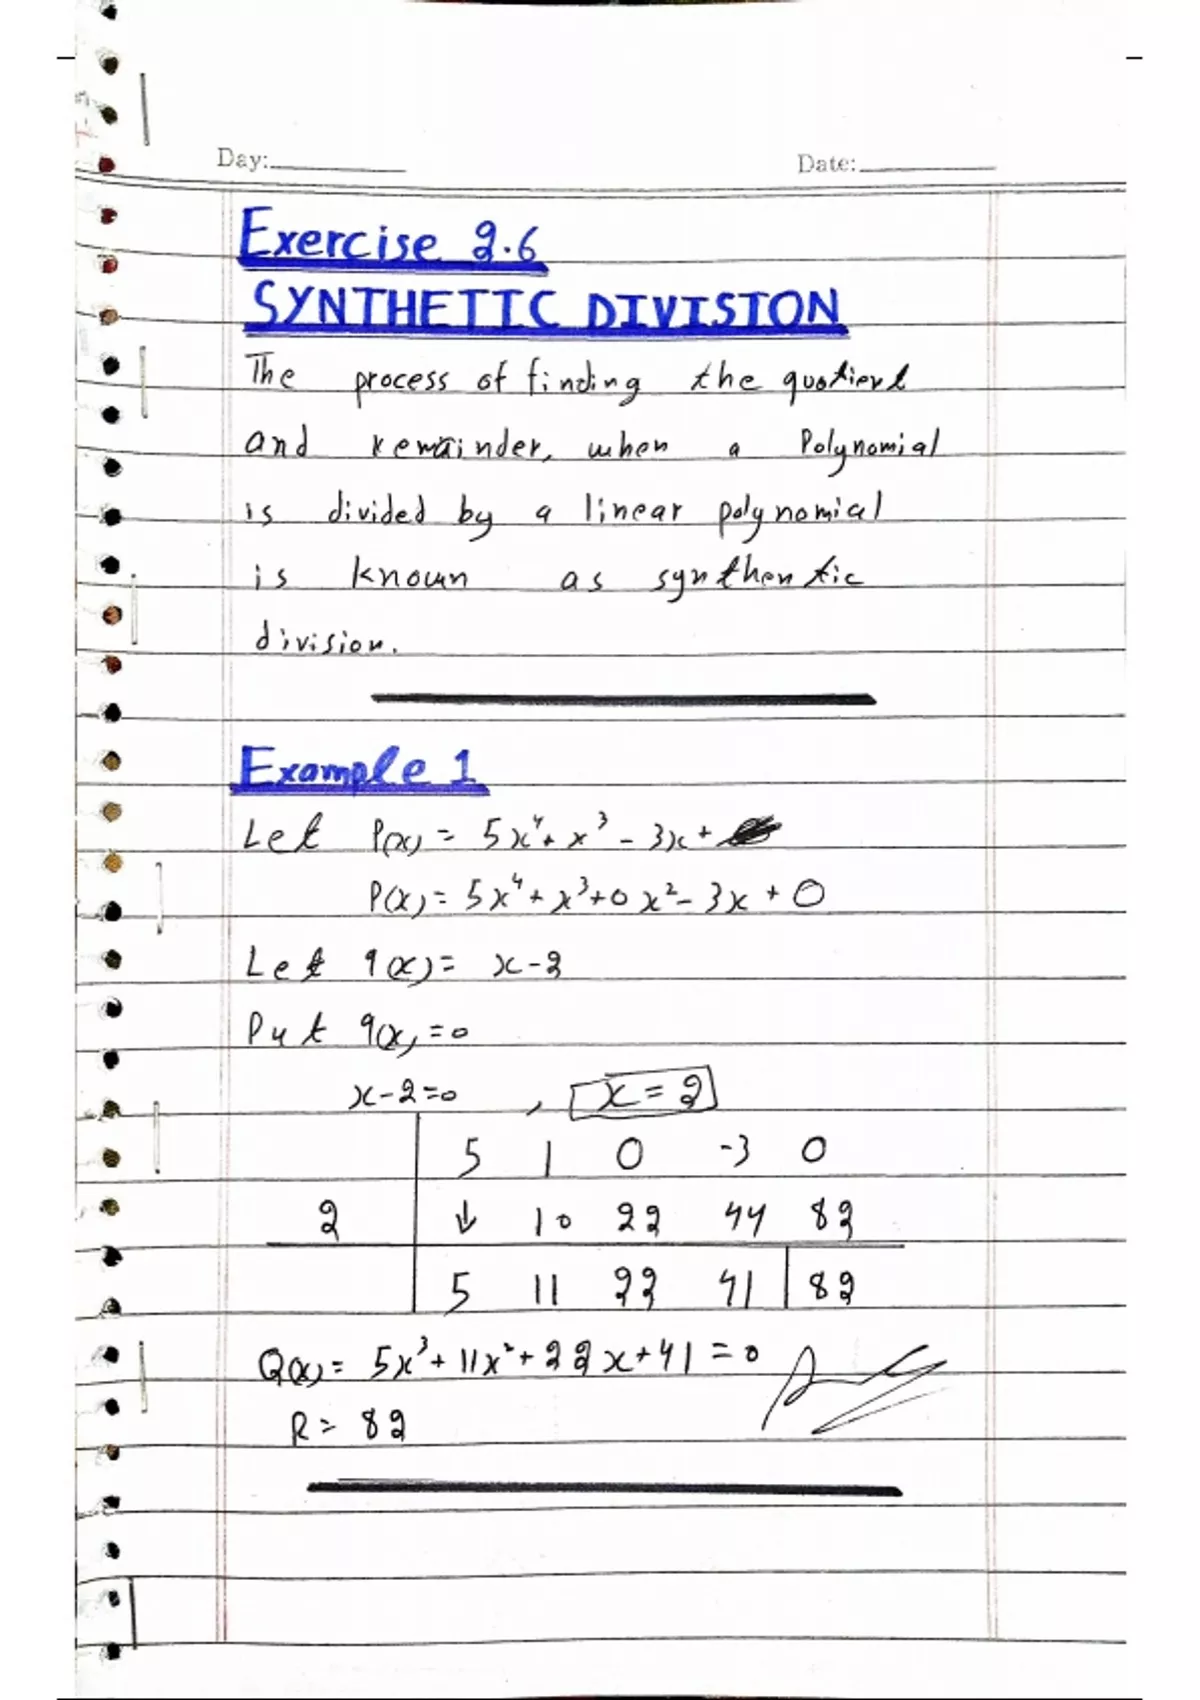 Day:
Date:
Exercise 2.6
SYNTHETIC DIVISION
The process of finding the quotient
and remainder, when a Polynomial
is divided by a linear polynomial
is known as synthentic
division.
Example 1
Let P(x) = 5x⁴ + x³ - 3x +
P(x) = 5x⁴ + x³ + 0x² - 3x + 0
Let q(x) = x-2
Put q(x) = 0
x-2=0 , x = 2
5 1 0 -3 0
2 ↓ 10 22 44 82
5 11 22 41 82
Q(x) = 5x³ + 11x² + 22x + 41 = 0
R = 82